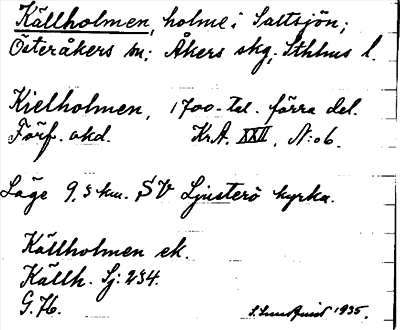 Källholmen, holme i Saltsjön;
Österåkers sn; Åkers skg; Sthlms l.
Kielholmen, 1700-tal. förra del.
Förf. okd. KrA. XXII, N:o 6.
Läge 9,5 km. SV Ljusterö kyrka.
Källholmen ek.
Källh. Sj: 234.
G. 76.
S. Lundquist 1935.